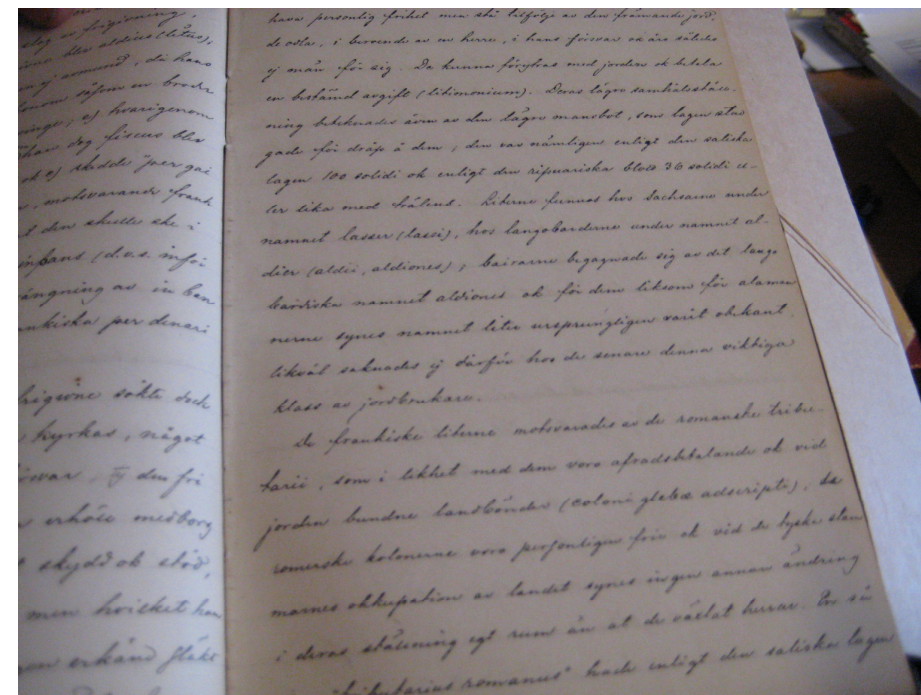 slag av frigivning,
blev aldius (litus),
ej arimund, då hans
honom såsom en broder
ej hvarigenom
han dog fiscus blev
ok ej skedde "per gai
motsvarande frank
den skulle ske i
infans (d.v.s. infö
ängning av in ban
nkiska per denari
frigivne sökte dock
kyrkas, något
den fri
medborg
skydd ok stöd,
men hvilket han
erkänd
hava personlig frihet men stå bifölje av den främmande jord,
de odla, i beroende av en herre, i hans försvar ok äro således
ej män för sig. De kunna föryttras med jorden ok betala
en bestämd avgift (litimonium). Deras lägre samhällsställ-
ning betecknades även av den lägre mansbot, som lagen stad
gade för dråp å dem; den var nämligen enligt den saliska
lagen 100 solidi ok enligt den ripuariska blott 36 solidi el-
ler lika med trälens. Literne funnos hos Sachsarne under
namnet lasser (lassi), hos langobarderne under namnet al
dier (aldii, aldiones); bairarne begagnade sig av det lango
bardiska namnet aldiones ok för dem liksom för alaman
nerne synes namnet liter ursprungligen varit obekant.
likväl saknades ej därför hos de senare denna viktiga
klass av jordbrukare.
De frankiske literne motsvarades av de romanske tribu-
tarii, som i likhet med dem voro afradsbetalande ok vid
jorden bundne landbönder (coloni glebæ adscripti). De
romerske kolonerne voro personligen frie ok vid de tyske stam
marnes okkupation av landet synes ingen annan ändring
i deras ställning egt rum än at de växlat herrar. En så
"tributarius romanus" hade enligt den saliska lagen